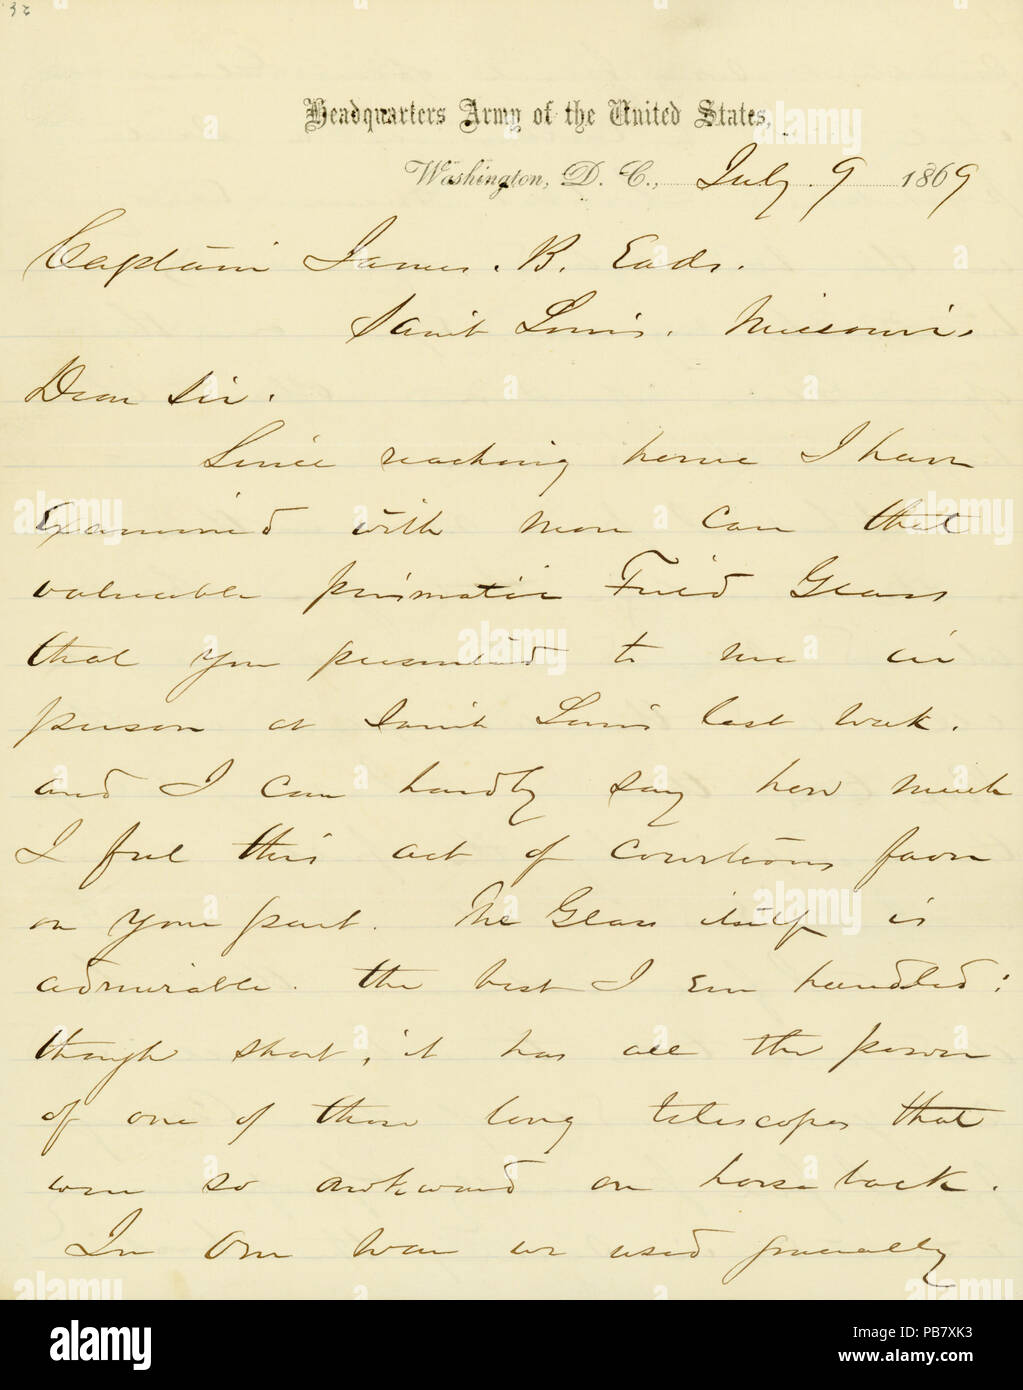 32
Headquarters Army of the United States,
Washington, D. C., July 9 1869
Captain James B. Eads.
Saint Louis. Missouri.
Dear Sir.
Since reaching home I have
examined with more care that
valuable prismatic Field Glass
that you presented to me in
person at Saint Louis last week.
and I can hardly say how much
I feel this act of courteous favor
on your part. The Glass itself is
admirable. the best I ever handled:
though short, it has all the power
of one of those long telescopes that
were so awkward on horseback.
In our war we used generally
alamy
PB7XK3
www.alamy.com